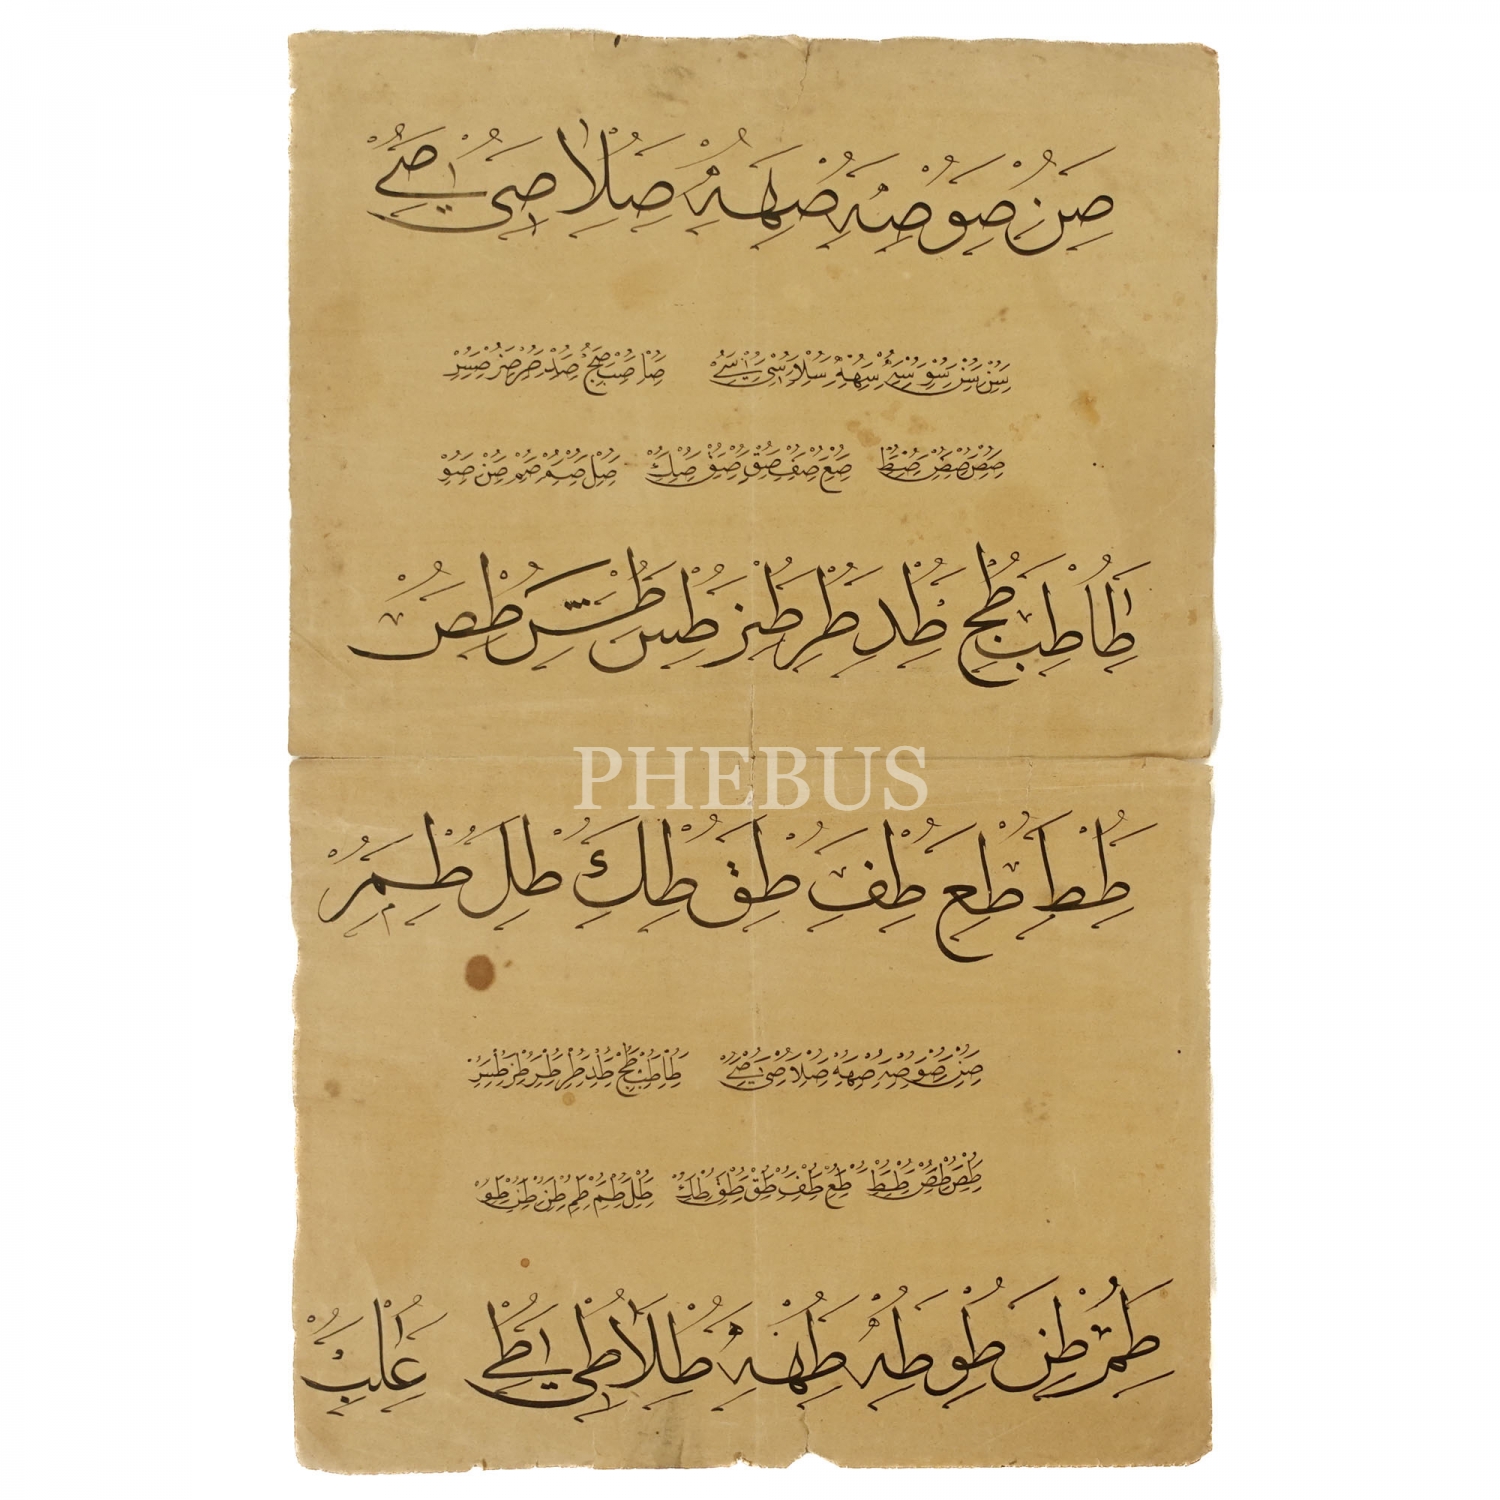 صن صو صه صهه صلا صى صے
سن سن سو سه سهه سلا سى سے صا صب صج صد صر صر صس
صص صص صط صع صف صق صق صك صل صم صم صن صو
طا طب طج طد طر طر طس طش طص
PHEBUS
طط طع طف طق طك طل طم
صن صو صه صهه صلا صى صے طا طب طج طد طر طر طر طس
طص طص طط طع طف طق طق طك طل طم طم طن طن طو
طم طن طو طه طهه طلا طى طے عا عب